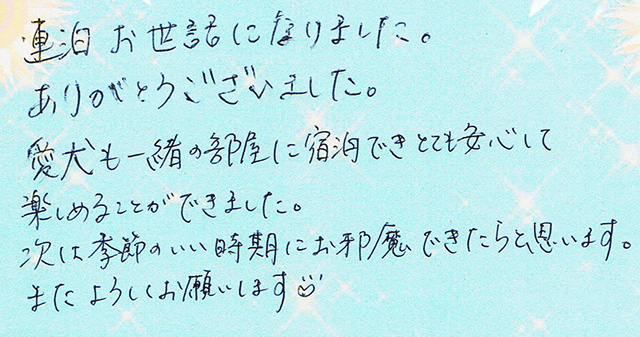 連泊お世話になりました。
ありがとうございました。
愛犬も一緒の部屋に宿泊できとても安心して
楽しめることができました。
次は季節のいい時期にお邪魔できたらと思います。
またよろしくお願いします☺